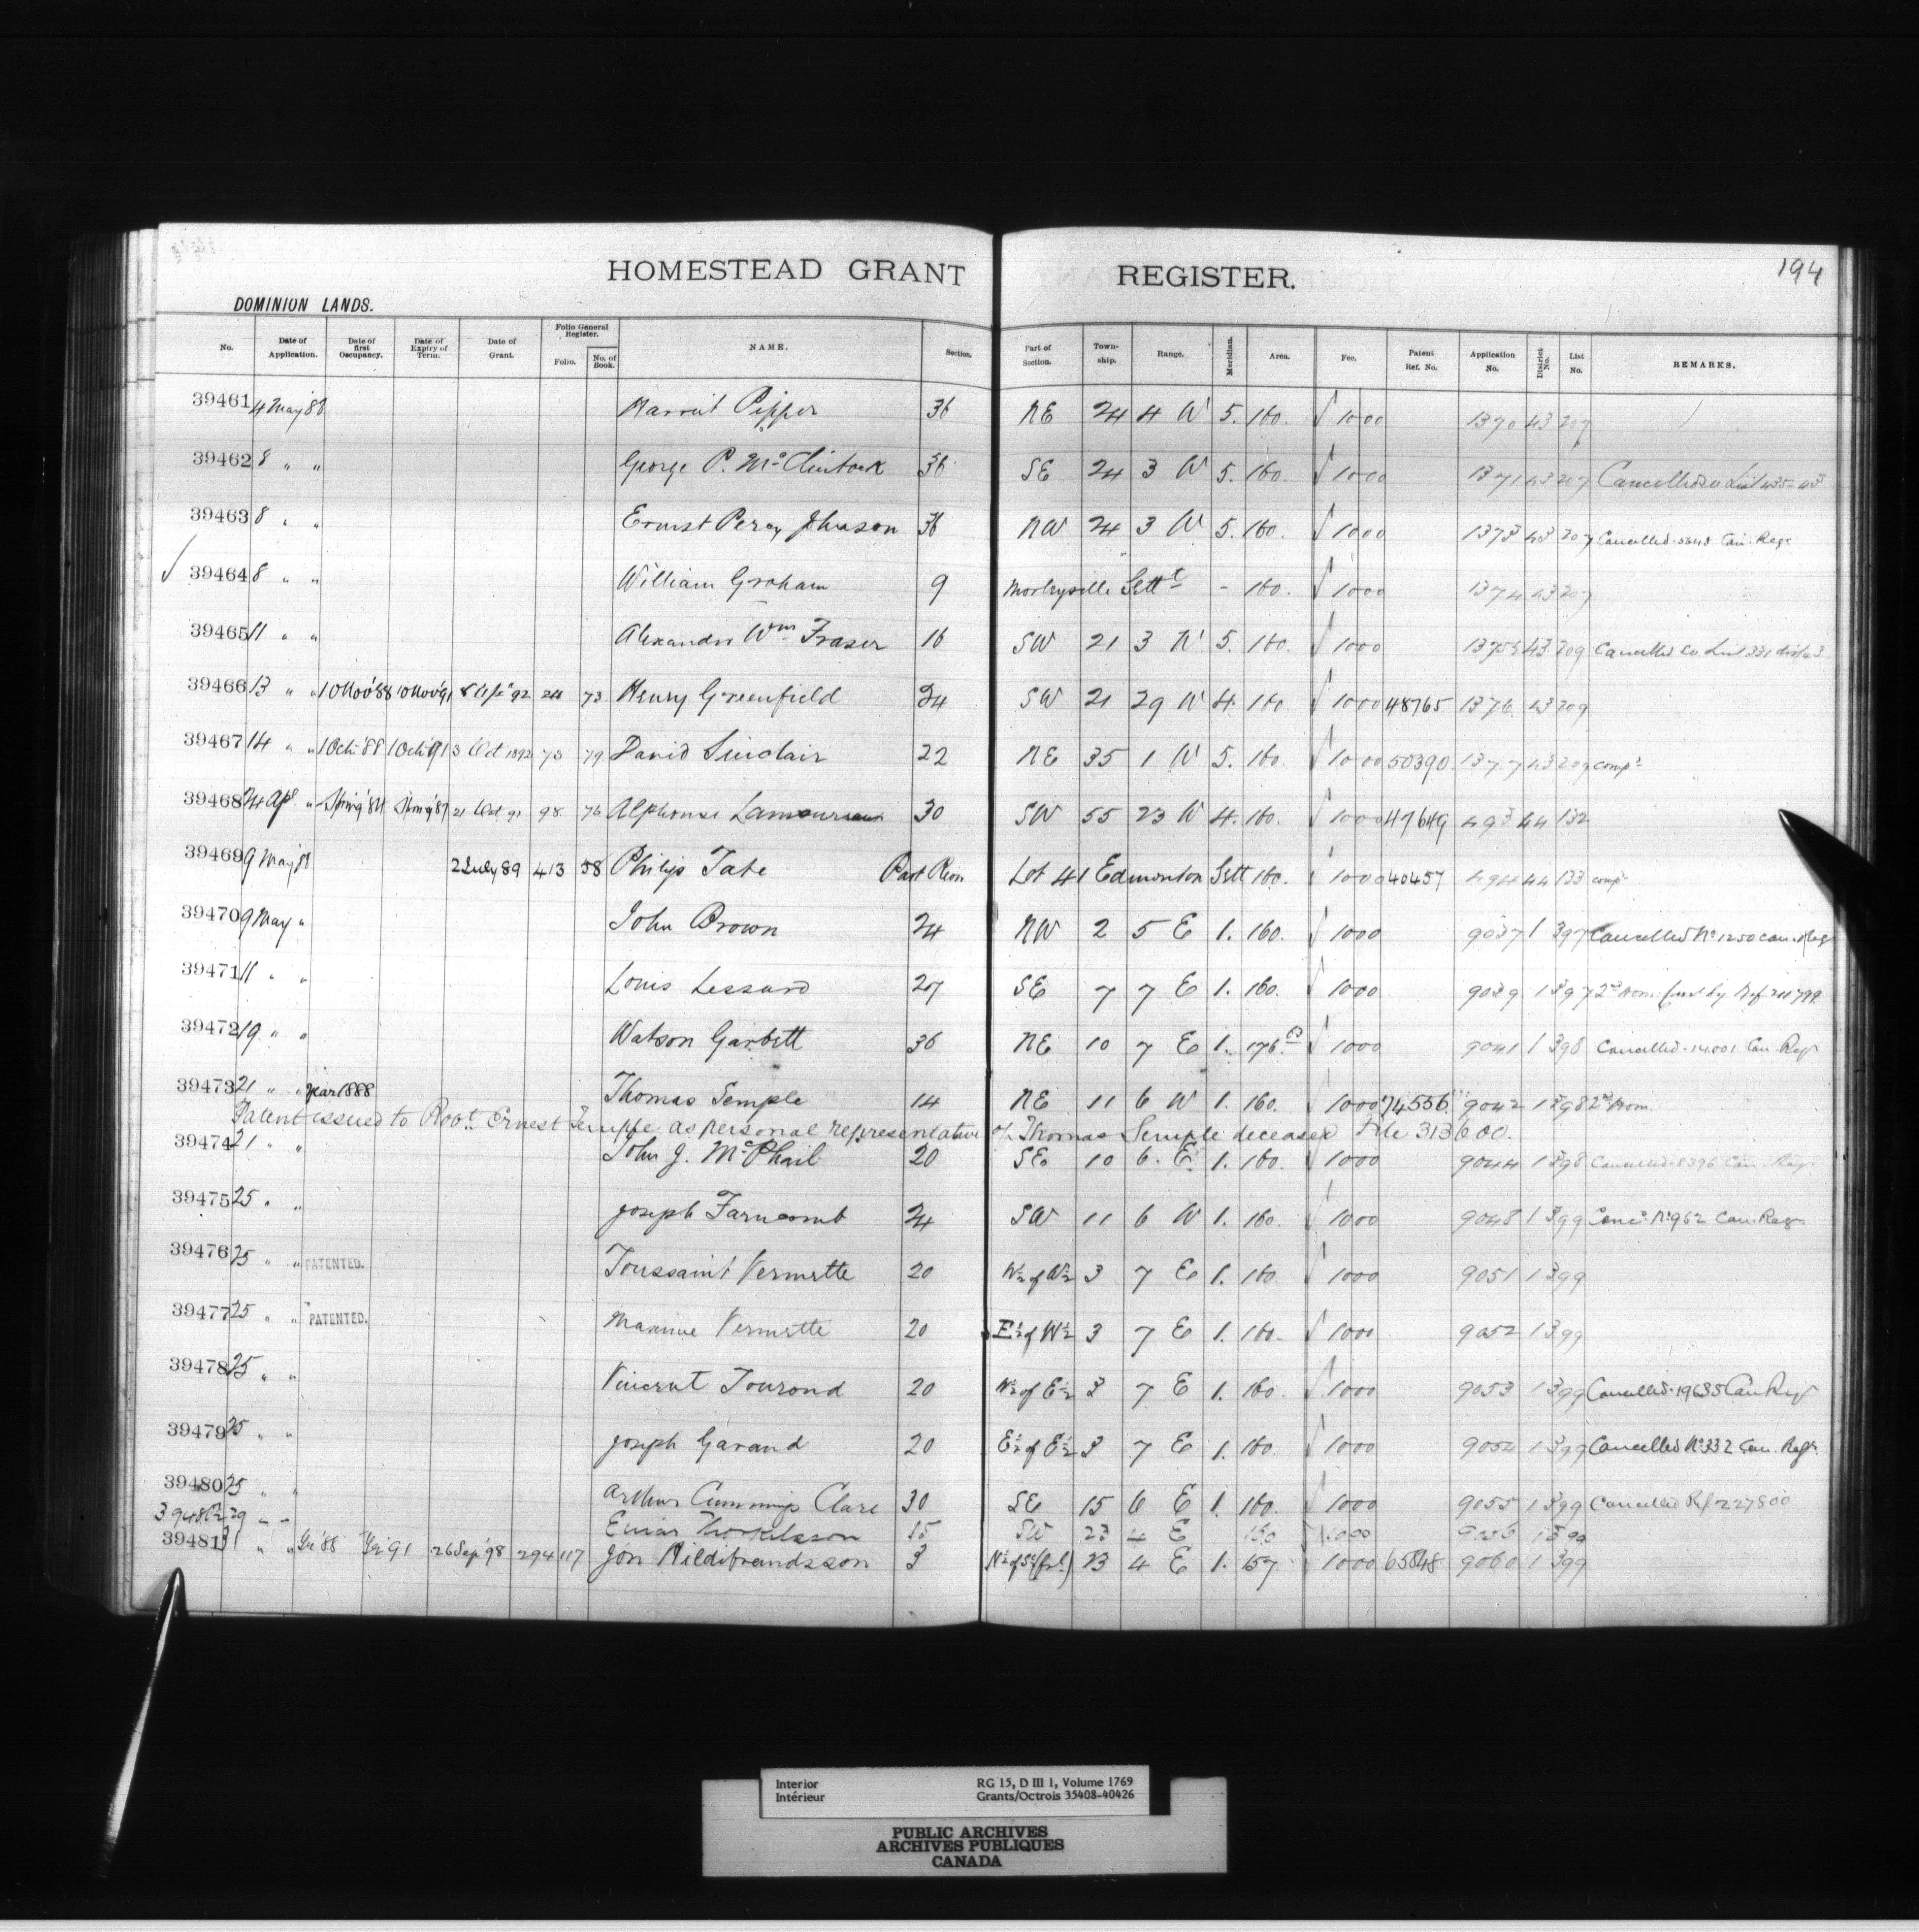 194
HOMESTEAD GRANT REGISTER.
DOMINION LANDS.
No. Date of Application. Date of first Occupancy. Date of Expiry of Term. Date of Grant. Folio General Register. Folio. No. of Book. NAME. Section. Part of Section. Township. Range. Meridian. Area. Fee. Patent Ref. No. Application No. District No. List No. REMARKS.
39461 4 May '88 Harriet Pepper 36 NE 24 4 W 5. 160. √ 1000 1370 43 207
39462 8 " " George P. McClintock 36 SE 24 3 W 5. 160. √ 1000 1371 43 207 Cancelled see List 435-43
39463 8 " " Ernest Percy Johnson 36 NW 24 3 W 5. 160. √ 1000 1373 43 207 Cancelled Can. Regr
√ 39464 8 " " William Graham 9 Morleyville Settt - 160. √ 1000 1374 43 207
39465 11 " " Alexander Wm Fraser 16 SW 21 3 W 5. 160. √ 1000 1375 43 209 Cancelled see List 331
39466 13 " " 10 Nov '88 10 Nov '91 8 92 24 73 Henry Greenfield 34 SW 21 29 W 4. 160. √ 1000 48765 1376 43 209
39467 14 " " 1 Oct '88 1 Oct '91 3 Oct 1892 73 79 David Sinclair 22 NE 35 1 W 5. 160. √ 1000 50390 1377 43 209 comp
39468 24 Apl " Spring '84 Spring '87 21 Oct 91 98 76 Alphonse Lamoureux 30 SW 55 23 W 4. 160. √ 1000 47649 493 44 132
39469 9 May '88 2 July 89 413 58 Philip Tate Part River Lot 41 Edmonton Sett 160. √ 1000 40457 494 44 133 comp
39470 9 May " John Brown 24 NW 2 5 E 1. 160. √ 1000 9037 1 397 Cancelled No 1250 Can. Regr
39471 11 " " Louis Lessard 27 SE 7 7 E 1. 160. √ 1000 9039 1 397 2nd Hom. by Ref 211799
39472 19 " " Watson Garbett 36 NE 10 7 E 1. 176. √ 1000 9041 1 398 Cancelled - 14001 Can. Regr
39473 21 " " Year 1888 Thomas Semple 14 NE 11 6 W 1. 160. √ 1000 74556 9042 1 398 2nd Hom.
Patent issued to Robt. Ernest Semple as personal representative of Thomas Semple deceased File 313600.
39474 21 " " John J. McPhail 20 SE 10 6. E 1. 160. √ 1000 9044 1 398 Cancelled - 8396 Can. Regr
39475 25 " " Joseph Farncomb 24 SW 11 6 W 1. 160. √ 1000 9048 1 399 Canc. No 962 Can. Regr
39476 25 " " PATENTED. Toussaint Vermette 20 W½ of W½ 3 7 E 1. 160 √ 1000 9051 1 399
39477 25 " " PATENTED. Maxime Vermette 20 E½ of W½ 3 7 E 1. 160. √ 1000 9052 1 399
39478 25 " " Vincent Tourond 20 W½ of E½ 3 7 E 1. 160. √ 1000 9053 1 399 Cancelled - 19635 Can Regr
39479 25 " " Joseph Garand 20 E½ of E½ 3 7 E 1. 160 √ 1000 9054 1 399 Cancelled No 332 Can. Regr.
39480 25 " " Arthur Cummings Clare 30 SE 15 6 E 1. 160. √ 1000 9055 1 399 Cancelled Ref 227800
39480½ 29 " " Einar Thorkelsson 15 SW 23 4 E 160 √ 1000 9056 1 399
39481 31 " " '88 91 26 Sep '98 294 117 Jón Hildibrandsson 3 N½ of S½ (frl.) 23 4 E 1. 157. √ 1000 65848 9060 1 399
Interior
Intérieur
RG 15, D III 1, Volume 1769
Grants/Octrois 35408-40426
PUBLIC ARCHIVES
ARCHIVES PUBLIQUES
CANADA